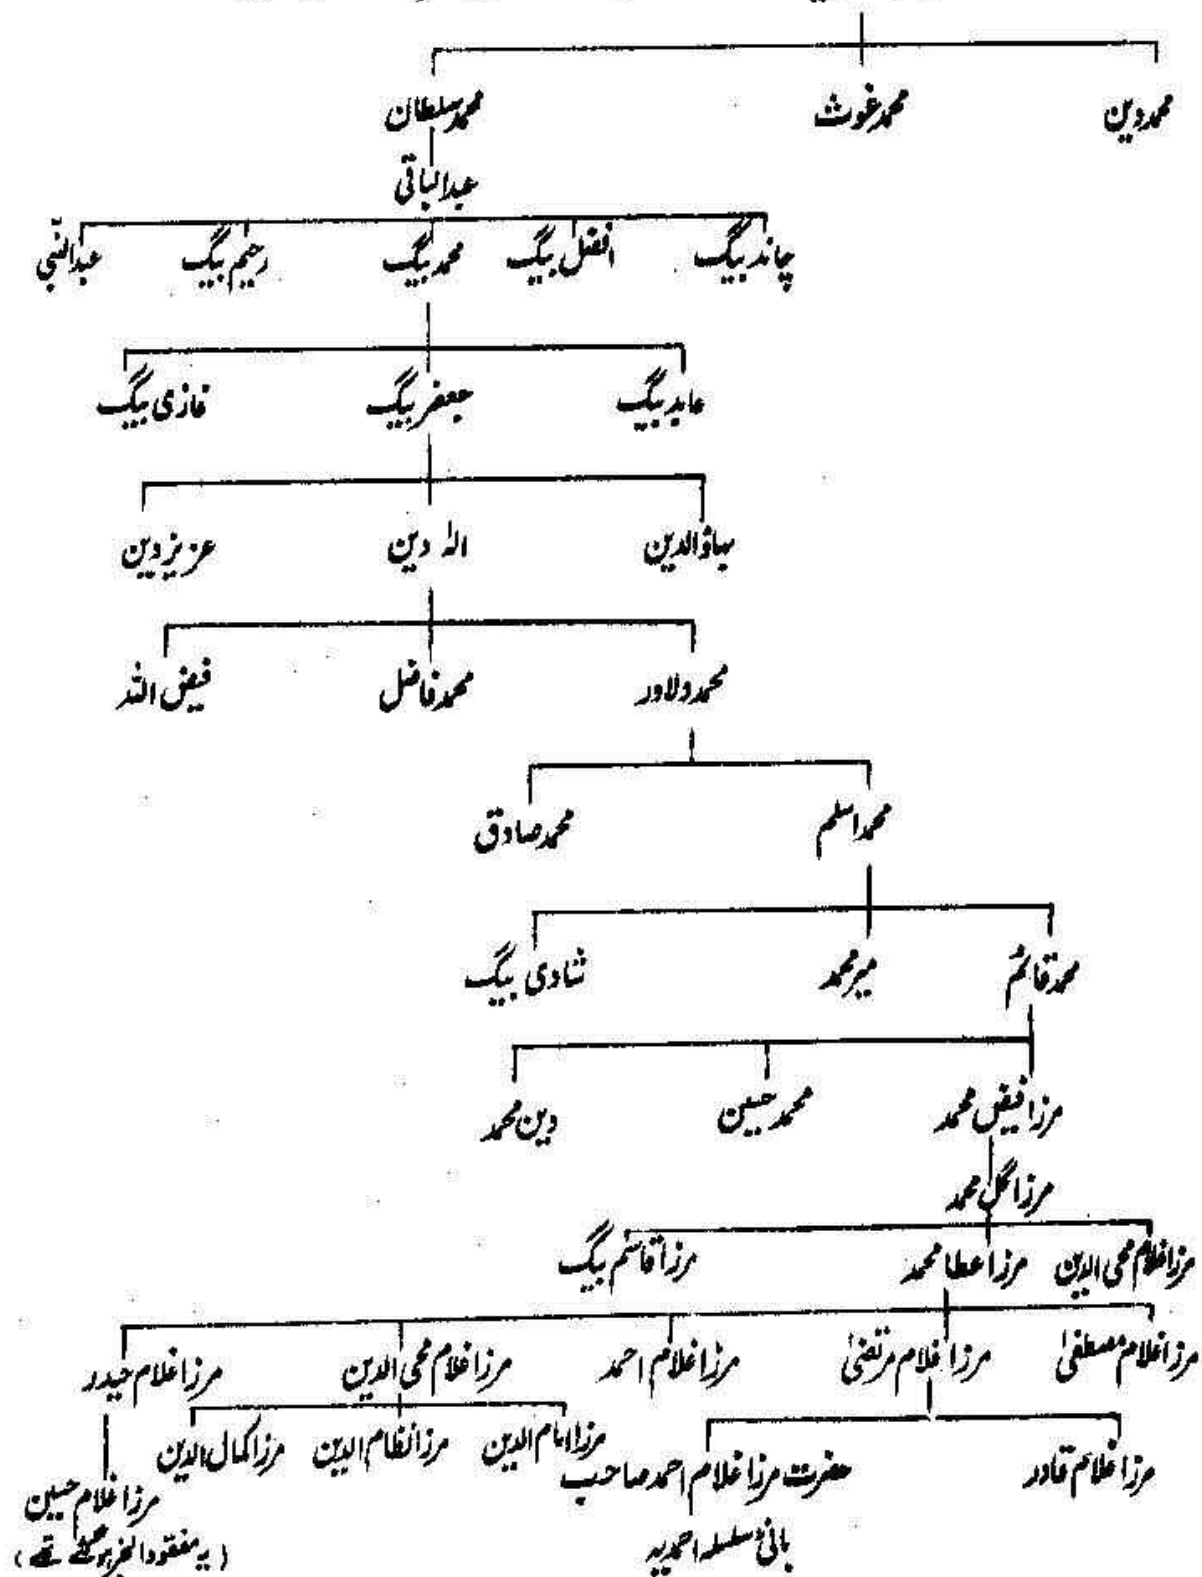 محمد دین محمد غوث محمد سلطان
عبدالباقی
چاند بیگ افضل بیگ محمد بیگ رحیم بیگ عبدالنبی
عابد بیگ جعفر بیگ غازی بیگ
بہاؤالدین الہ دین عزیز دین
محمد دلاور محمد فاضل فیض اللہ
محمد اسلم محمد صادق
محمد قائم میر محمد شادی بیگ
مرزا فیض محمد محمد حسین دین محمد
مرزا گل محمد
مرزا غلام محی الدین مرزا عطا محمد مرزا قاسم بیگ
مرزا غلام مصطفیٰ مرزا غلام مرتضیٰ مرزا غلام احمد مرزا غلام محی الدین مرزا غلام حیدر
مرزا امام الدین مرزا نظام الدین مرزا کمال الدین
مرزا غلام قادر حضرت مرزا غلام احمد صاحب
مرزا غلام حسین
بانیٔ سلسلہ احمدیہ
(یہ مفقود الخبر ہو گئے تھے)